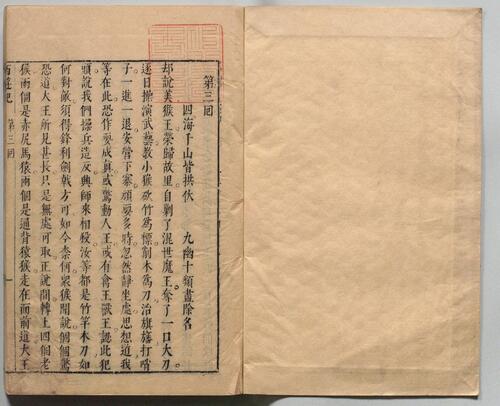 第三回
四海千山皆拱伏　九幽十類盡除名
却說美猴王榮歸故里自剿了混世魔王奪了一口大刀
逐日操演武藝教小猴砍竹爲標削木爲刀治旗旛打哨
子一進一退安營下寨頑耍多時忽然靜坐處思想道我
等在此恐作耍成真或驚動人王或有禽王獸王認此犯
頭說我們操兵造反興師來相殺汝等都是竹竿木刀如
何對敵須得鋒利劍戟方可如今奈何衆猴聞說個個驚
恐道大王所見甚長只是無處可取正說間轉上四個老
猴兩個是赤尻馬猿兩個是通背猿猴走在面前道大王
西遊記　第三回　一